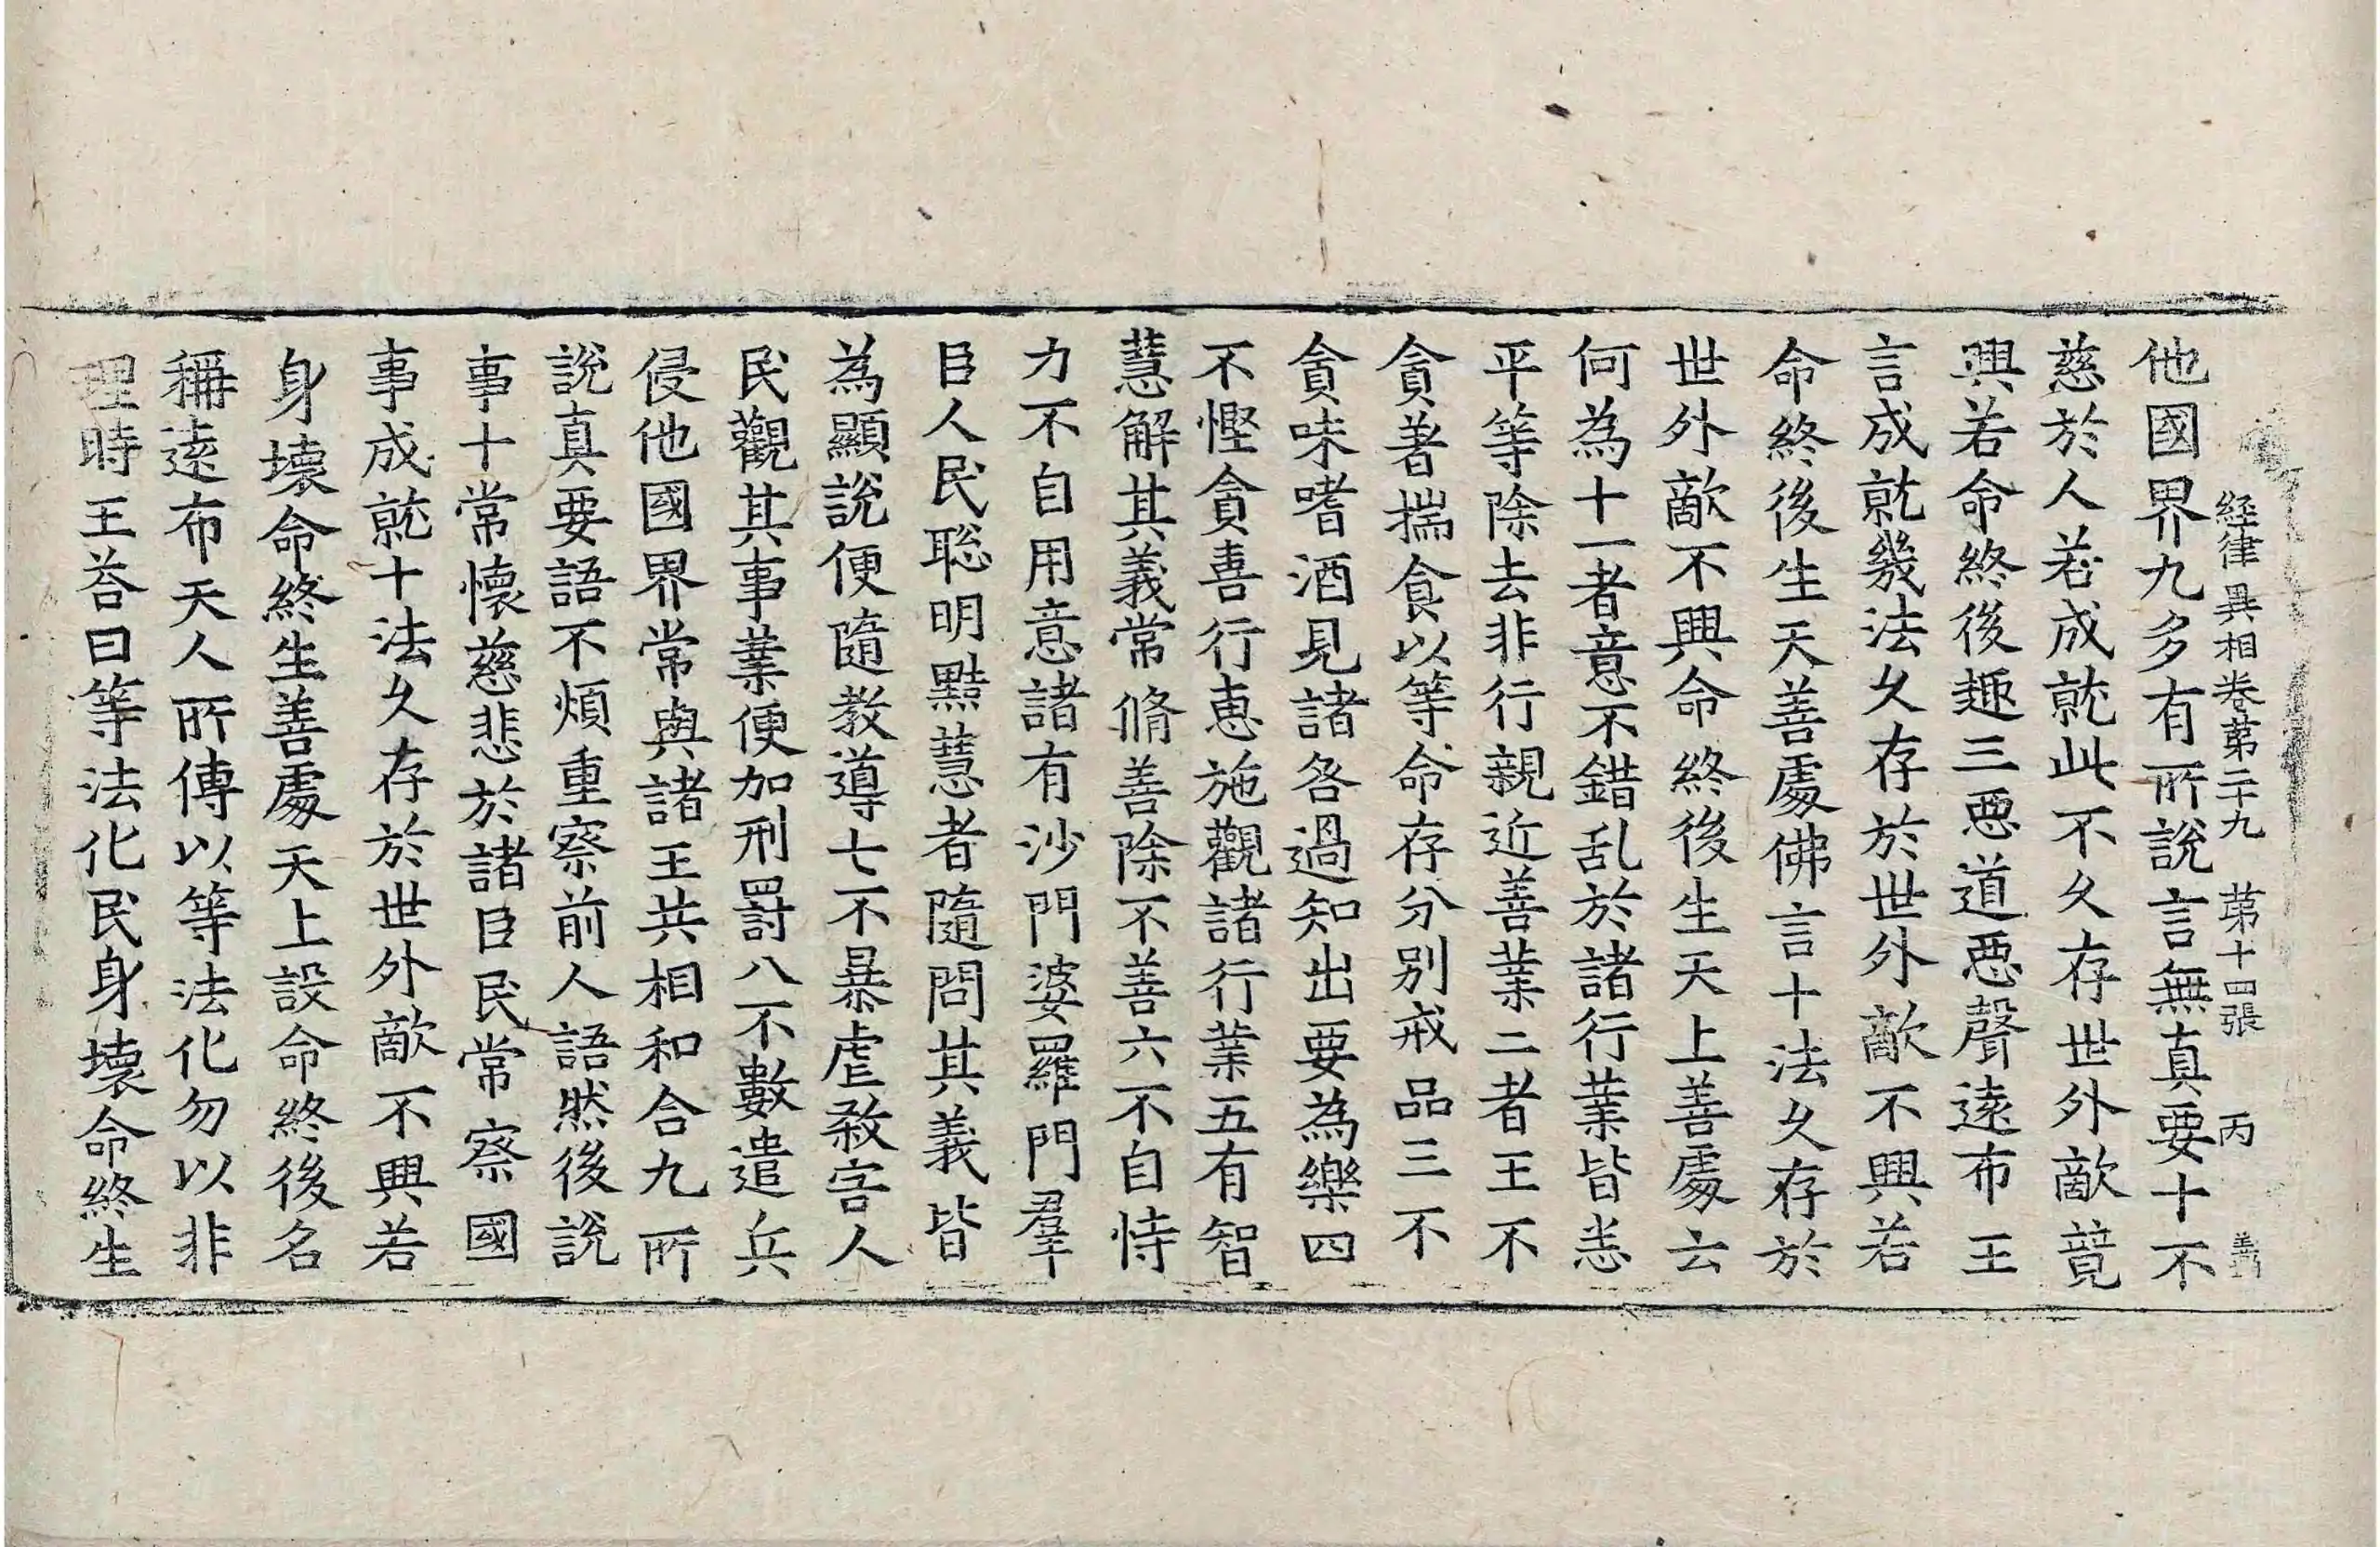 経律異相卷苐二十九　苐十四張　丙
他國界九多有所說言無真要十不
慈於人若成就此不久存世外敵竟
興若命終後趣三惡道惡聲遠布王
言成就幾法久存於世外敵不興若
命終後生天善處佛言十法久存於
世外敵不興命終後生天上善處云
何為十一者意不錯乱於諸行業皆悉
平等除去非行親近善業二者王不
貪著揣食以等命存分別戒品三不
貪味嗜酒見諸咎過知出要為樂四
不慳貪喜行惠施觀諸行業五有智
慧解其義常脩善除不善六不自恃
力不自用意諸有沙門婆羅門羣
臣人民聡明黠慧者隨問其義皆
為顯說便隨教導七不暴虐煞害人
民觀其事業便加刑罸八不數遣兵
侵他國界常與諸王共相和合九所
說真要語不煩重察前人語然後說
事十常懷慈悲於諸臣民常察國
事成就十法久存於世外敵不興若
身壞命終生善處天上設命終後名
稱遠布天人所傳以等法化勿以非
理時王荅曰等法化民身壞命終生